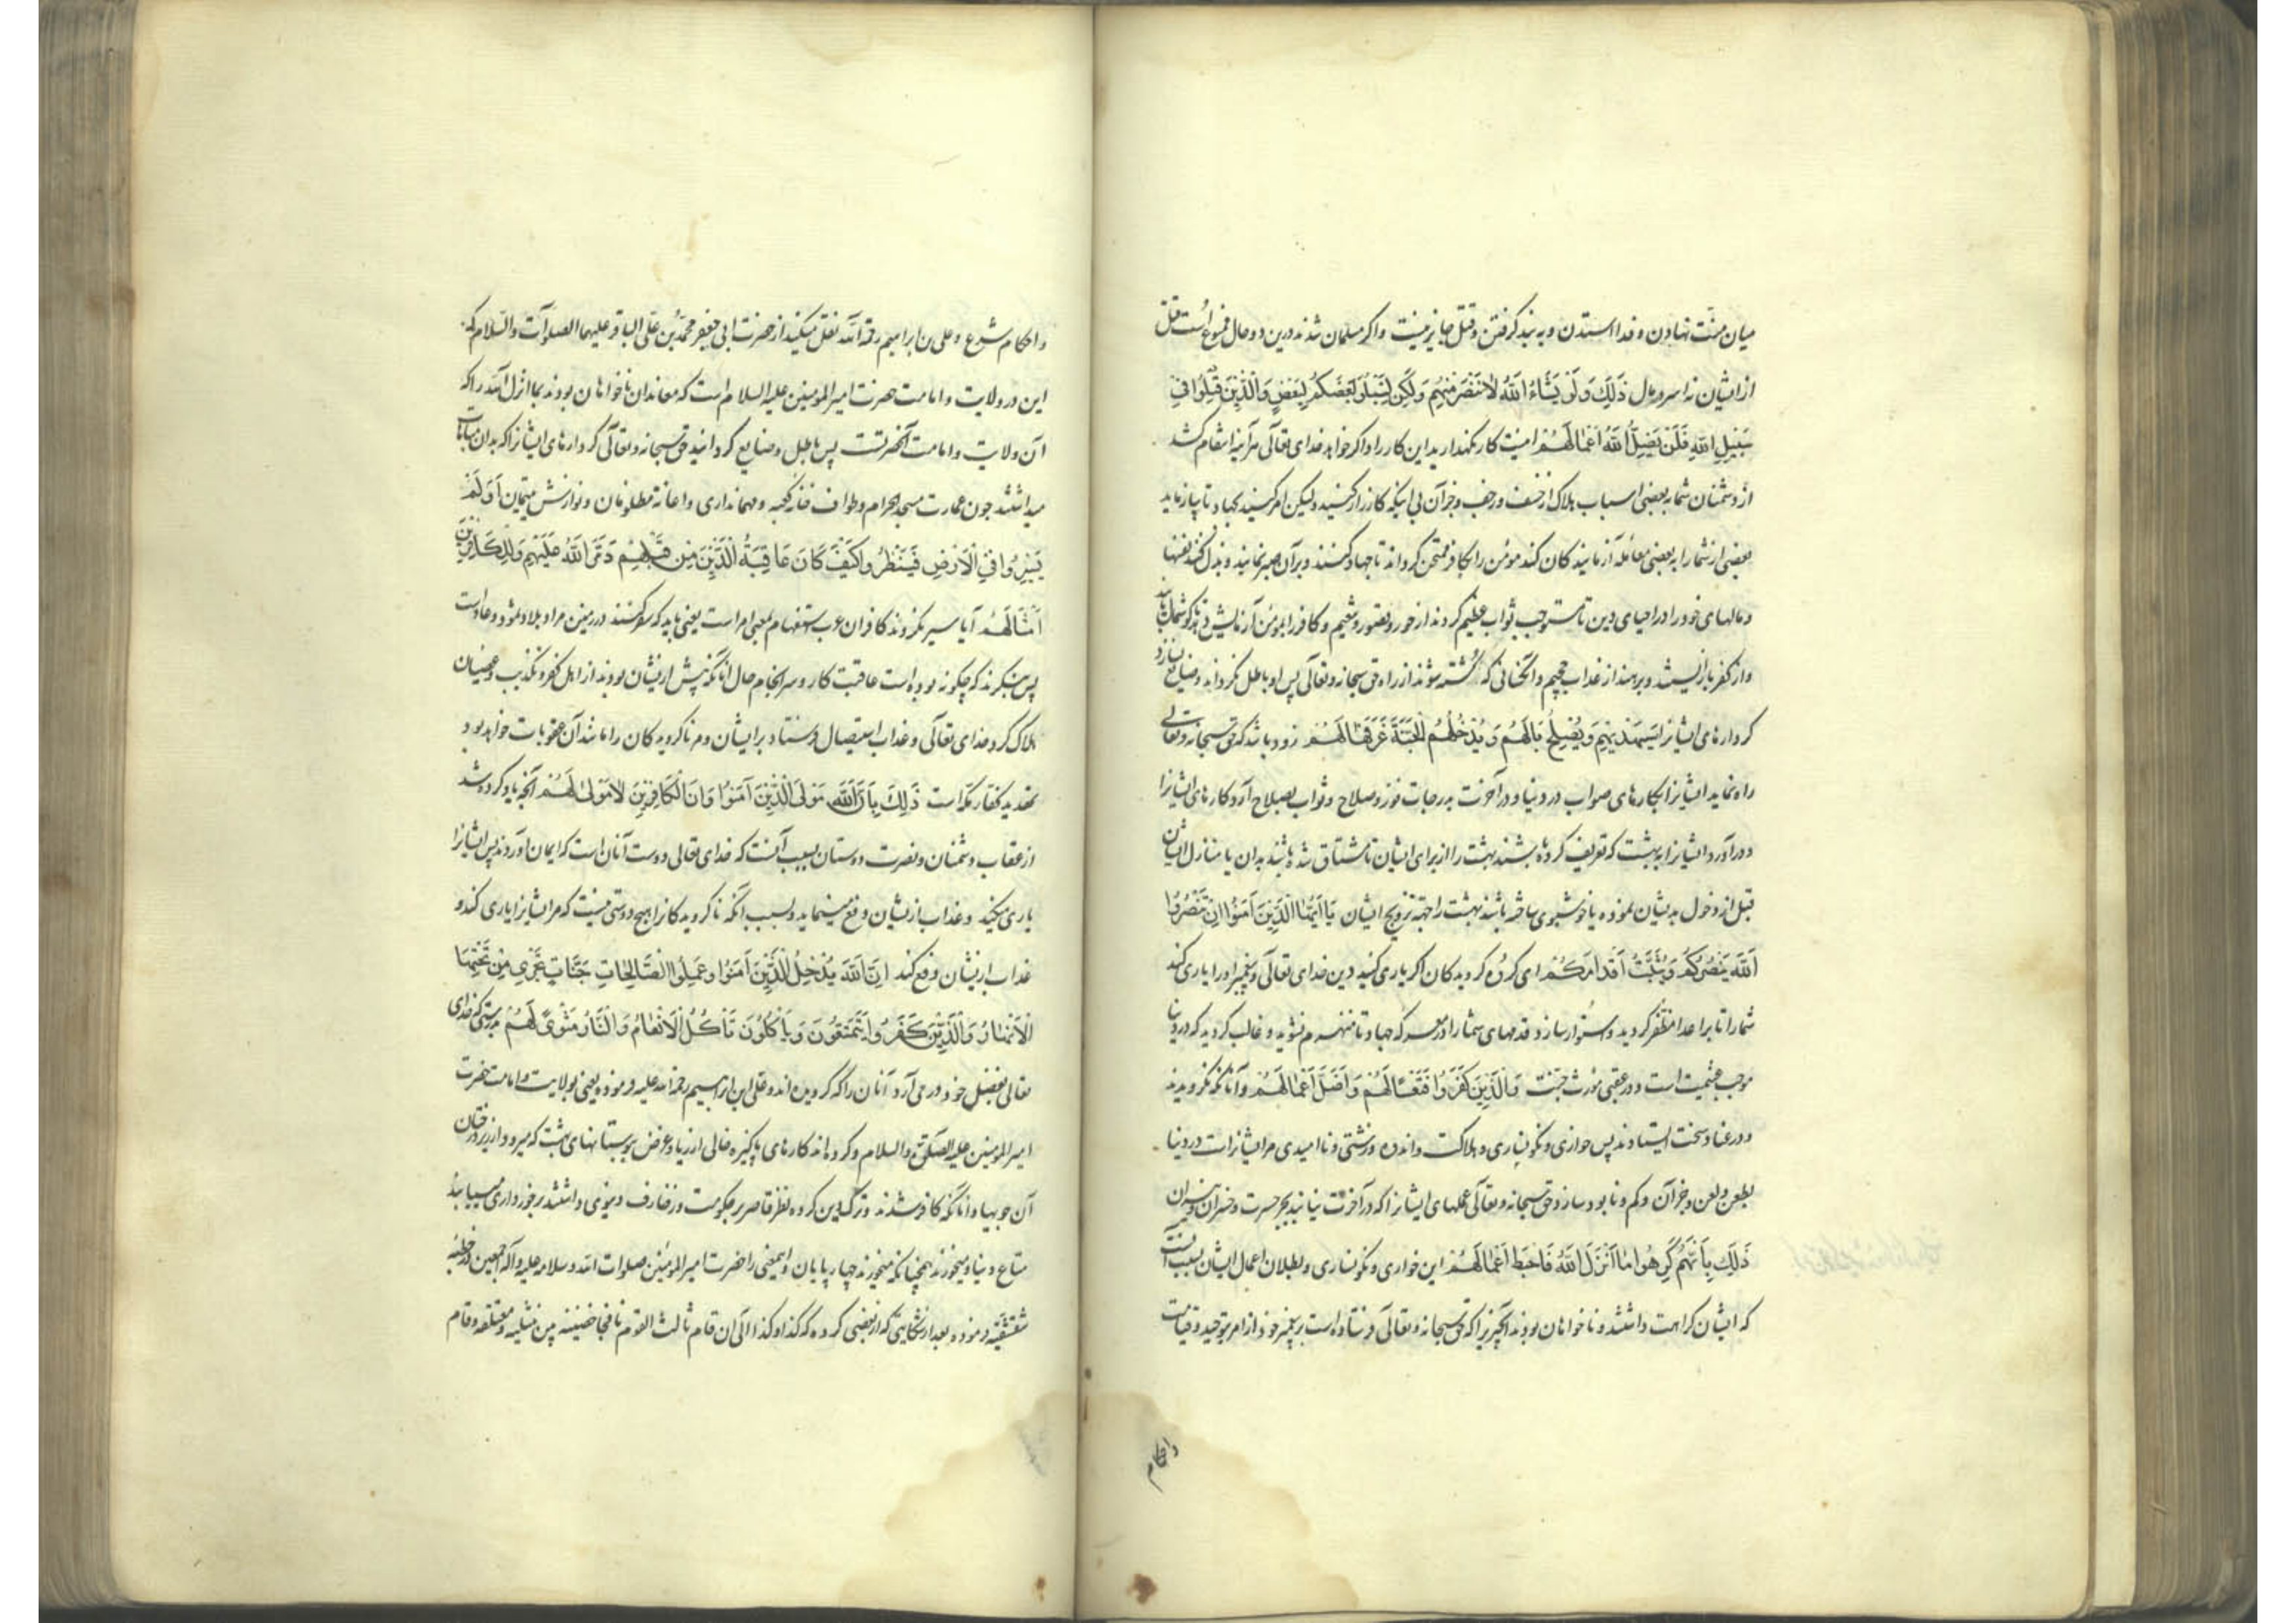 میان منّت نهادن و فدا استدن و به بند کرفتن و قتل جایز نیست و اکر مسلمان شدند درین دو حال ممنوع است قتل
از ایشان نه اسر و مال ذَلِكَ وَلَوْ يَشَاءُ اللَّهُ لَانْتَصَرَ مِنْهُمْ وَلَكِنْ لِيَبْلُوَ بَعْضَكُمْ بِبَعْضٍ وَالَّذِينَ قُتِلُوا فِي
سَبِيلِ اللَّهِ فَلَنْ يُضِلَّ اللَّهُ أَعْمَالَهُمْ اینست کار نکهدارید این کار را و اکر خواهد خدای تعالی هرآینه انتقام کشد
از دشمنان شما به بعضی اسباب هلاک از خسف و رجف و جز آن بی اینکه کارزار کنید ولیکن امر کنید بجهاد تا بیازماید
بعضی از شما را به بعضی معامله آزمایندکان کند مؤمن را بکافر ممتحن کرداند تا جهاد کنند و بر آن صبر نمایند و بذل کنند نفسها
و مالهای خود را در احیای دین تا مستوجب ثواب عظیم کردند از حور و قصور و نعیم و کافر را بمؤمن آزمایش دهد تا کوشمال یابند
و از کفر باز ایستند و برهند از عذاب جحیم و آنکسانی که کشته شوند از راه حق سبحانه و تعالی پس او باطل نکرداند و ضایع نسازد
کردارهای ایشانرا سَيَهْدِيهِمْ وَيُصْلِحُ بَالَهُمْ وَيُدْخِلُهُمُ الْجَنَّةَ عَرَّفَهَا لَهُمْ زود باشد که حق سبحانه و تعالی
راه نماید ایشانرا بکارهای صواب در دنیا و در آخرت به درجات فوز و صلاح و ثواب بصلاح آرد کارهای ایشانرا
و درآورد ایشانرا به بهشت که تعریف کرده باشند بهشت را از برای ایشان تا مشتاق شده باشند بدان یا منازل ایشان
قبل از دخول بدیشان نموده یا خوشبوی ساخته باشد بهشت را جهة ترویح ایشان يَا أَيُّهَا الَّذِينَ آمَنُوا إِنْ تَنْصُرُوا
اللَّهَ يَنْصُرْكُمْ وَيُثَبِّتْ أَقْدَامَكُمْ ای کروه کرویدکان اکر یاری کنید دین خدای تعالی و پیغمبر او را یاری کند
شما را تا بر اعدا مظفر کردید و استوار سازد قدمهای شما را در معرکه جهاد تا منهزم نشوید و غالب کردید که در دنیا
موجب غنیمت است و در عقبی مورث جنت وَالَّذِينَ كَفَرُوا فَتَعْسًا لَهُمْ وَأَضَلَّ أَعْمَالَهُمْ و آنانکه نکرویدند
و در عناد سخت ایستادند پس خواری و نکونساری و هلاکت و اندوه و زشتی و ناامیدی مر ایشانراست در دنیا
بطعن و لعن و جز آن و کم و نابود سازد حق سبحانه و تعالی عملهای ایشانرا که در آخرت نیابند بجز حسرت و خسران و نیران
ذَلِكَ بِأَنَّهُمْ كَرِهُوا مَا أَنْزَلَ اللَّهُ فَأَحْبَطَ أَعْمَالَهُمْ این خواری و نکونساری و بطلان اعمال ایشان بسبب آنست
که ایشان کراهت داشتند و ناخواهان بودند آنچیز را که حق سبحانه و تعالی فرستاده است بر پیغمبر خود از امر توحید و قیامت
واحکام
و احکام شرع و علی بن ابراهیم رحمة الله نقل میکند از حضرت ابی جعفر محمد بن علی الباقر علیهما الصلوات والسلام که
این در ولایت و امامت حضرت امیرالمومنین علیه السلام است که معاندان ناخواهان بودند بما انزل الله را که
آن ولایت و امامت آنحضرتست پس باطل و ضایع کردانید حق سبحانه و تعالی کردارهای ایشانرا که بدان مباهات
میداشتند چون عمارت مسجد الحرام و طواف خانه کعبه و مهمانداری و اعانة مظلومان و نوازش یتیمان أَوَلَمْ
يَسِيرُوا فِي الْأَرْضِ فَيَنْظُرُوا كَيْفَ كَانَ عَاقِبَةُ الَّذِينَ مِنْ قَبْلِهِمْ دَمَّرَ اللَّهُ عَلَيْهِمْ وَلِلْكَافِرِينَ
أَمْثَالُهَا آیا سیر نکردند کافران عرب استفهام بمعنی امر است یعنی باید که سفر کنند در زمین مراد بلاد ثمود و عاد است
پس بنکرند که چکونه بوده است عاقبت کار و سرانجام حال آنانکه پیش ازیشان بودند از اهل کفر و تکذیب و عصیان
هلاک کرد خدای تعالی و عذاب استیصال فرستاد بر ایشان و مر ناکرویدکان را مانند آن عقوبات خواهد بود
تهدید کفار مکه است ذَلِكَ بِأَنَّ اللَّهَ مَوْلَى الَّذِينَ آمَنُوا وَأَنَّ الْكَافِرِينَ لَا مَوْلَى لَهُمْ آنچه یاد کرده شد
از عقاب دشمنان و نصرت دوستان بسبب آنست که خدای تعالی دوست آنان است که ایمان آوردند پس ایشانرا
یاری میکند و عذاب ازیشان دفع مینماید و بسبب آنکه ناکرویدکانرا هیچ دوستی نیست که مر ایشانرا یاری کند و
عذاب ازیشان دفع کند إِنَّ اللَّهَ يُدْخِلُ الَّذِينَ آمَنُوا وَعَمِلُوا الصَّالِحَاتِ جَنَّاتٍ تَجْرِي مِنْ تَحْتِهَا
الْأَنْهَارُ وَالَّذِينَ كَفَرُوا يَتَمَتَّعُونَ وَيَأْكُلُونَ كَمَا تَأْكُلُ الْأَنْعَامُ وَالنَّارُ مَثْوًى لَهُمْ بدرستی که خدای
تعالی بفضل خود در می آرد آنان را که کرویده اند و علی ابن ابراهیم رحمة الله علیه فرموده یعنی بولایت و امامت حضرت
امیرالمومنین علیه الصلوة والسلام و کرده اند کارهای پاکیزه خالی از ریا و غرض ببوستانهای بهشت که میرود از زیر درختان
آن جویها و آنانکه کافر شدند و ترک دین کرده نظر قاصر بر حکومت و زخارف دنیوی داشتند برخورداری مییابند
متاع دنیا و میخورند همچنانکه میخورند چهار پایان و این معنی را حضرت امیرالمومنین صلوات الله وسلامه علیه وآله اجمعین در خطبه
شقشقیه فرموده بعد از شکایتی که از بعضی کرده که کذا و کذا الی ان قام ثالث القوم نافجا حضنیه بین نثیله ومعتلفه وقام